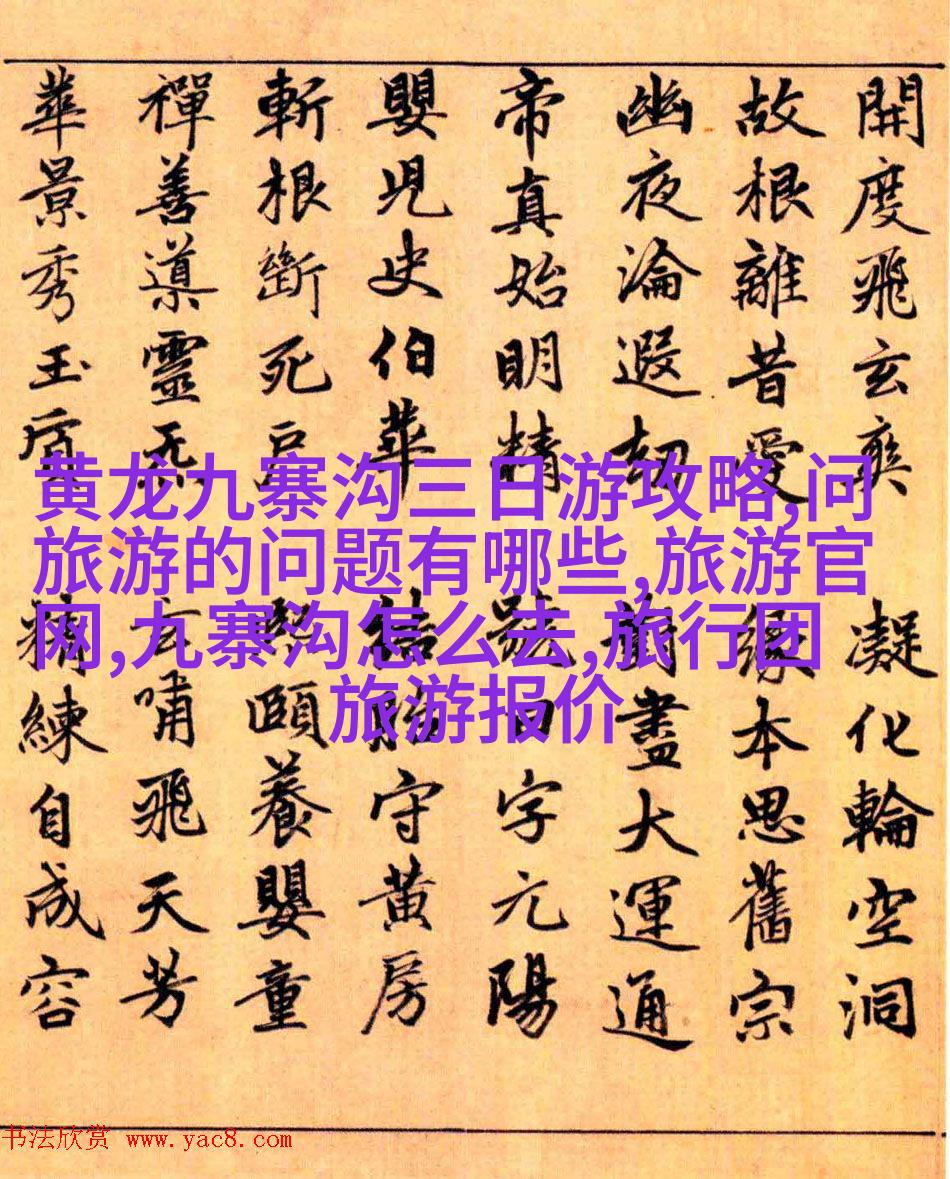 開度飛玄爽 凝化輪空洞
故根離昔愛 緣本思舊宗
幽夜淪遐劫 對盡大運通
帝真始明精 號曰字元陽
嬰児史伯華 結胎守黄房
斬根斷死戶 熙頤養嬰童
禪善導靈炁 玄嘯飛天芳
華景秀玉質 精練自成容
黄龙九寨沟三日游攻略,问
旅游的问题有哪些,旅游官
网,九寨沟怎么去,旅行团
旅游报价
书法欣赏 www.yac8.com